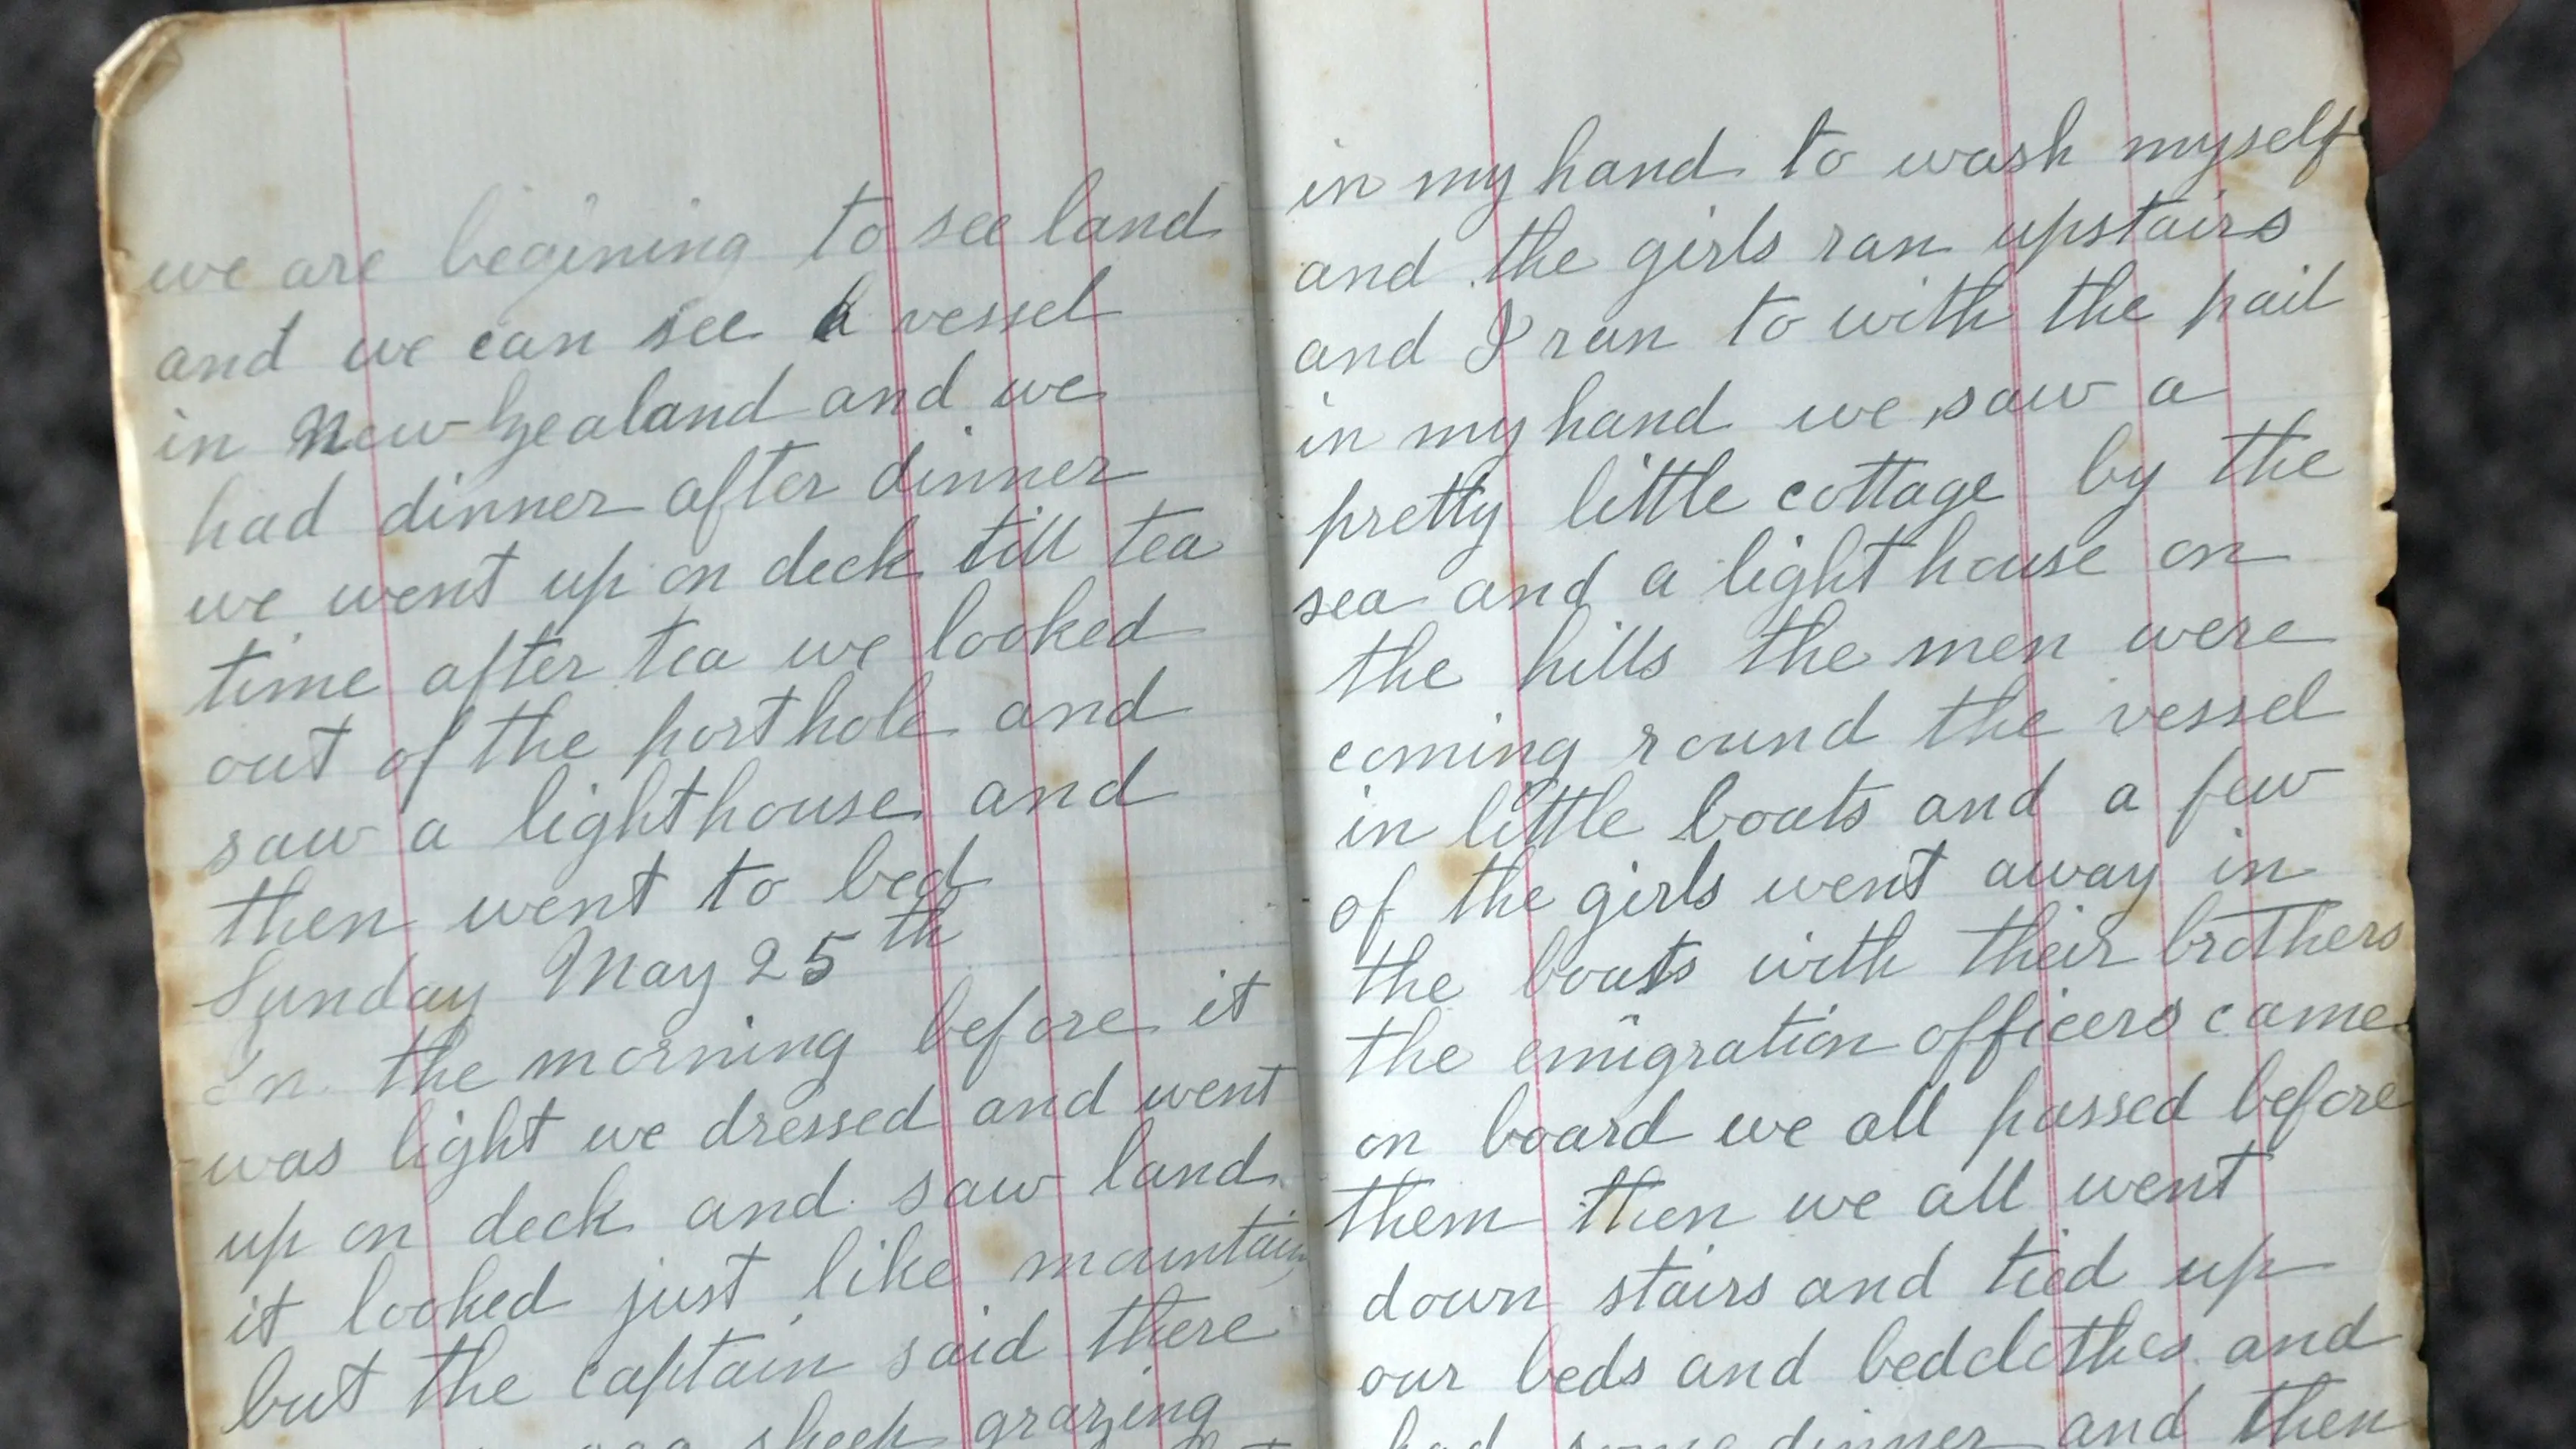 we are begining to see land
and we can see a vessel
in New Zealand and we
had dinner after dinner
we went up on deck till tea
time after tea we looked
out of the porthole and
saw a lighthouse and
then went to bed
Sunday May 25th
In the morning before it
was light we dressed and went
up on deck and saw land
it looked just like mountain
but the captain said there
sheep grazing
in my hand to wash myself
and the girls ran upstairs
and I ran to with the pail
in my hand we saw a
pretty little cottage by the
sea and a light house on
the hills the men were
coming round the vessel
in little boats and a few
of the girls went away in
the boats with their brothers
the emigration officers came
on board we all passed before
them then we all went
down stairs and tied up
our beds and bedclothes and
had some dinner and then